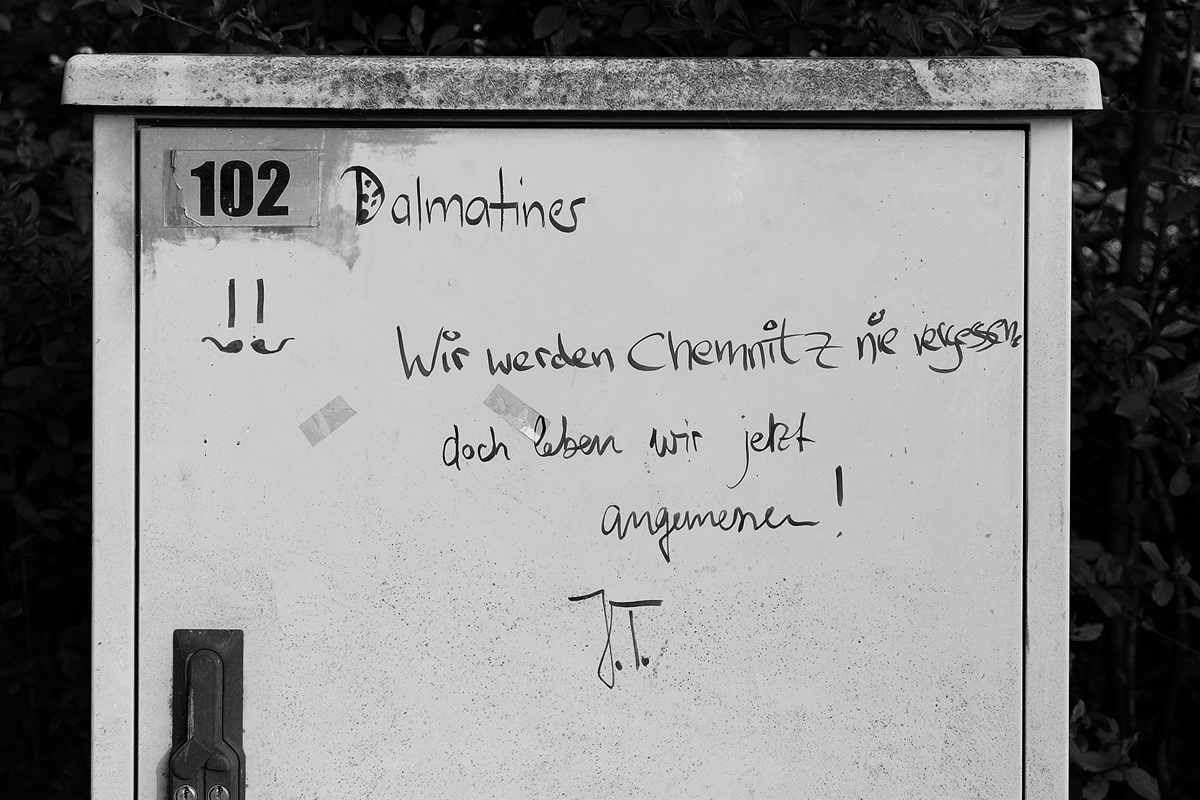 102 Dalmatiner
!!
Wir werden Chemnitz nie vergessen,
doch leben wir jetzt
angemessen!
J.T.